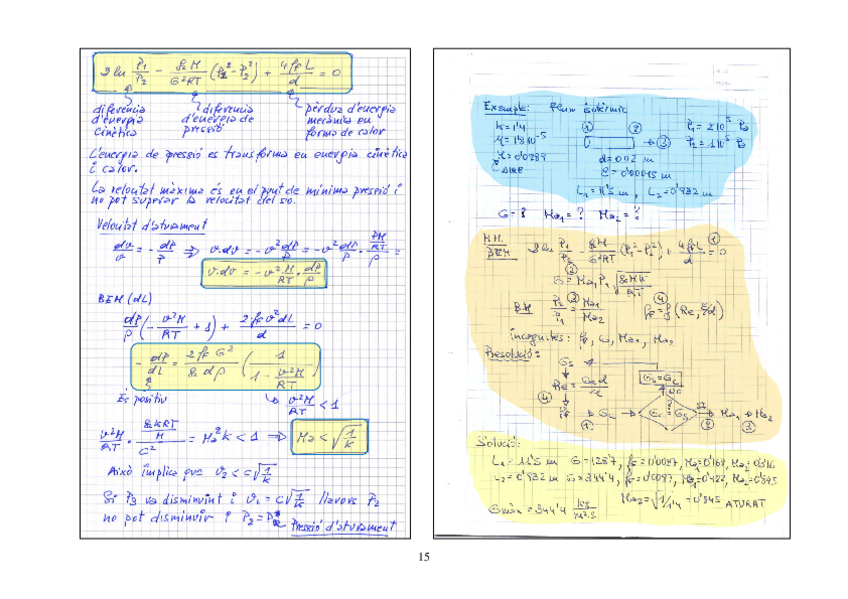 2 ln P₁/P₂ − g_c M/G²RT (P₁²−P₂²) + 4 f_F L/d = 0
diferència d'energia cinètica
diferencia d'energia de pressió
pèrdua d'energia mecànica en forma de calor
L'energia de pressió es transforma en energia cinètica
i calor.
La velocitat màxima és en el punt de mínima pressió i
no pot superar la velocitat del so.
Velocitat d'aturament
dv/v = − dρ/ρ ⇒ v·dv = −v² dρ/ρ = −v² dρ/ρ · PM/RT/ρ =
v·dv = −v² M/RT · dP/ρ
BEM (dL)
dP/ρ (− v²M/RT + 1) + 2 f_F v² dL/d = 0
− dP/dL = 2 f_F G²/g_c d ρ ( 1/1 − v²M/RT )
És positiu
v²M/RT < 1
v²M/RT · g_c k RT/M/c² = Ma² k < 1 ⇒ Ma < √1/k
Això implica que v₂ < c√1/k
Si P₃ va disminuint i v₂ = c√1/k llavors P₂
no pot disminuir i P₂ = P*
Pressió d'aturament
Exemple: Flux isotèrmic
k = 1'4
① ②
P₁ = 2·10⁵ Pa
μ = 1'8·10⁻⁵
→ ③
P₂ = 1·10⁵ Pa
M = 0'0289
d = 0'02 m
AIRE
ε = 0'00015 m
L₁ = 11'5 m , L₂ = 0'932 m
G = ? Ma₁ = ? Ma₂ = ?
B.H.
BEM
2 ln P₁/P₂ − g_c M/G²RT (P₁²−P₂²) + 4 f_F L/d = 0 ①
② G = Ma₁ P₁ √g_c M k/RT
BM P₂/P₁ = Ma₁/Ma₂ ③
④ f_F = f (Re, ε/d)
incògnites: f_F, G, Ma₁, Ma₂
Resolució:
G_s
Re = G_s d/μ
G_s = G_c
no
④
→ G_c → G_c = G_s → Ma₁ → Ma₂
① ② ③
Solució:
L₁ = 11'5 m G = 128'7, f_F = 0'0087, Ma₁ = 0'158, Ma₂ = 0'316
L₂ = 0'932 m G = 344'4, f_F = 0'0087, Ma₁ = 0'422, Ma₂ = 0'845
G_màx = 344'4 kg/m²·s
Ma₂ = √1/1'4 = 0'845 ATURAT
15